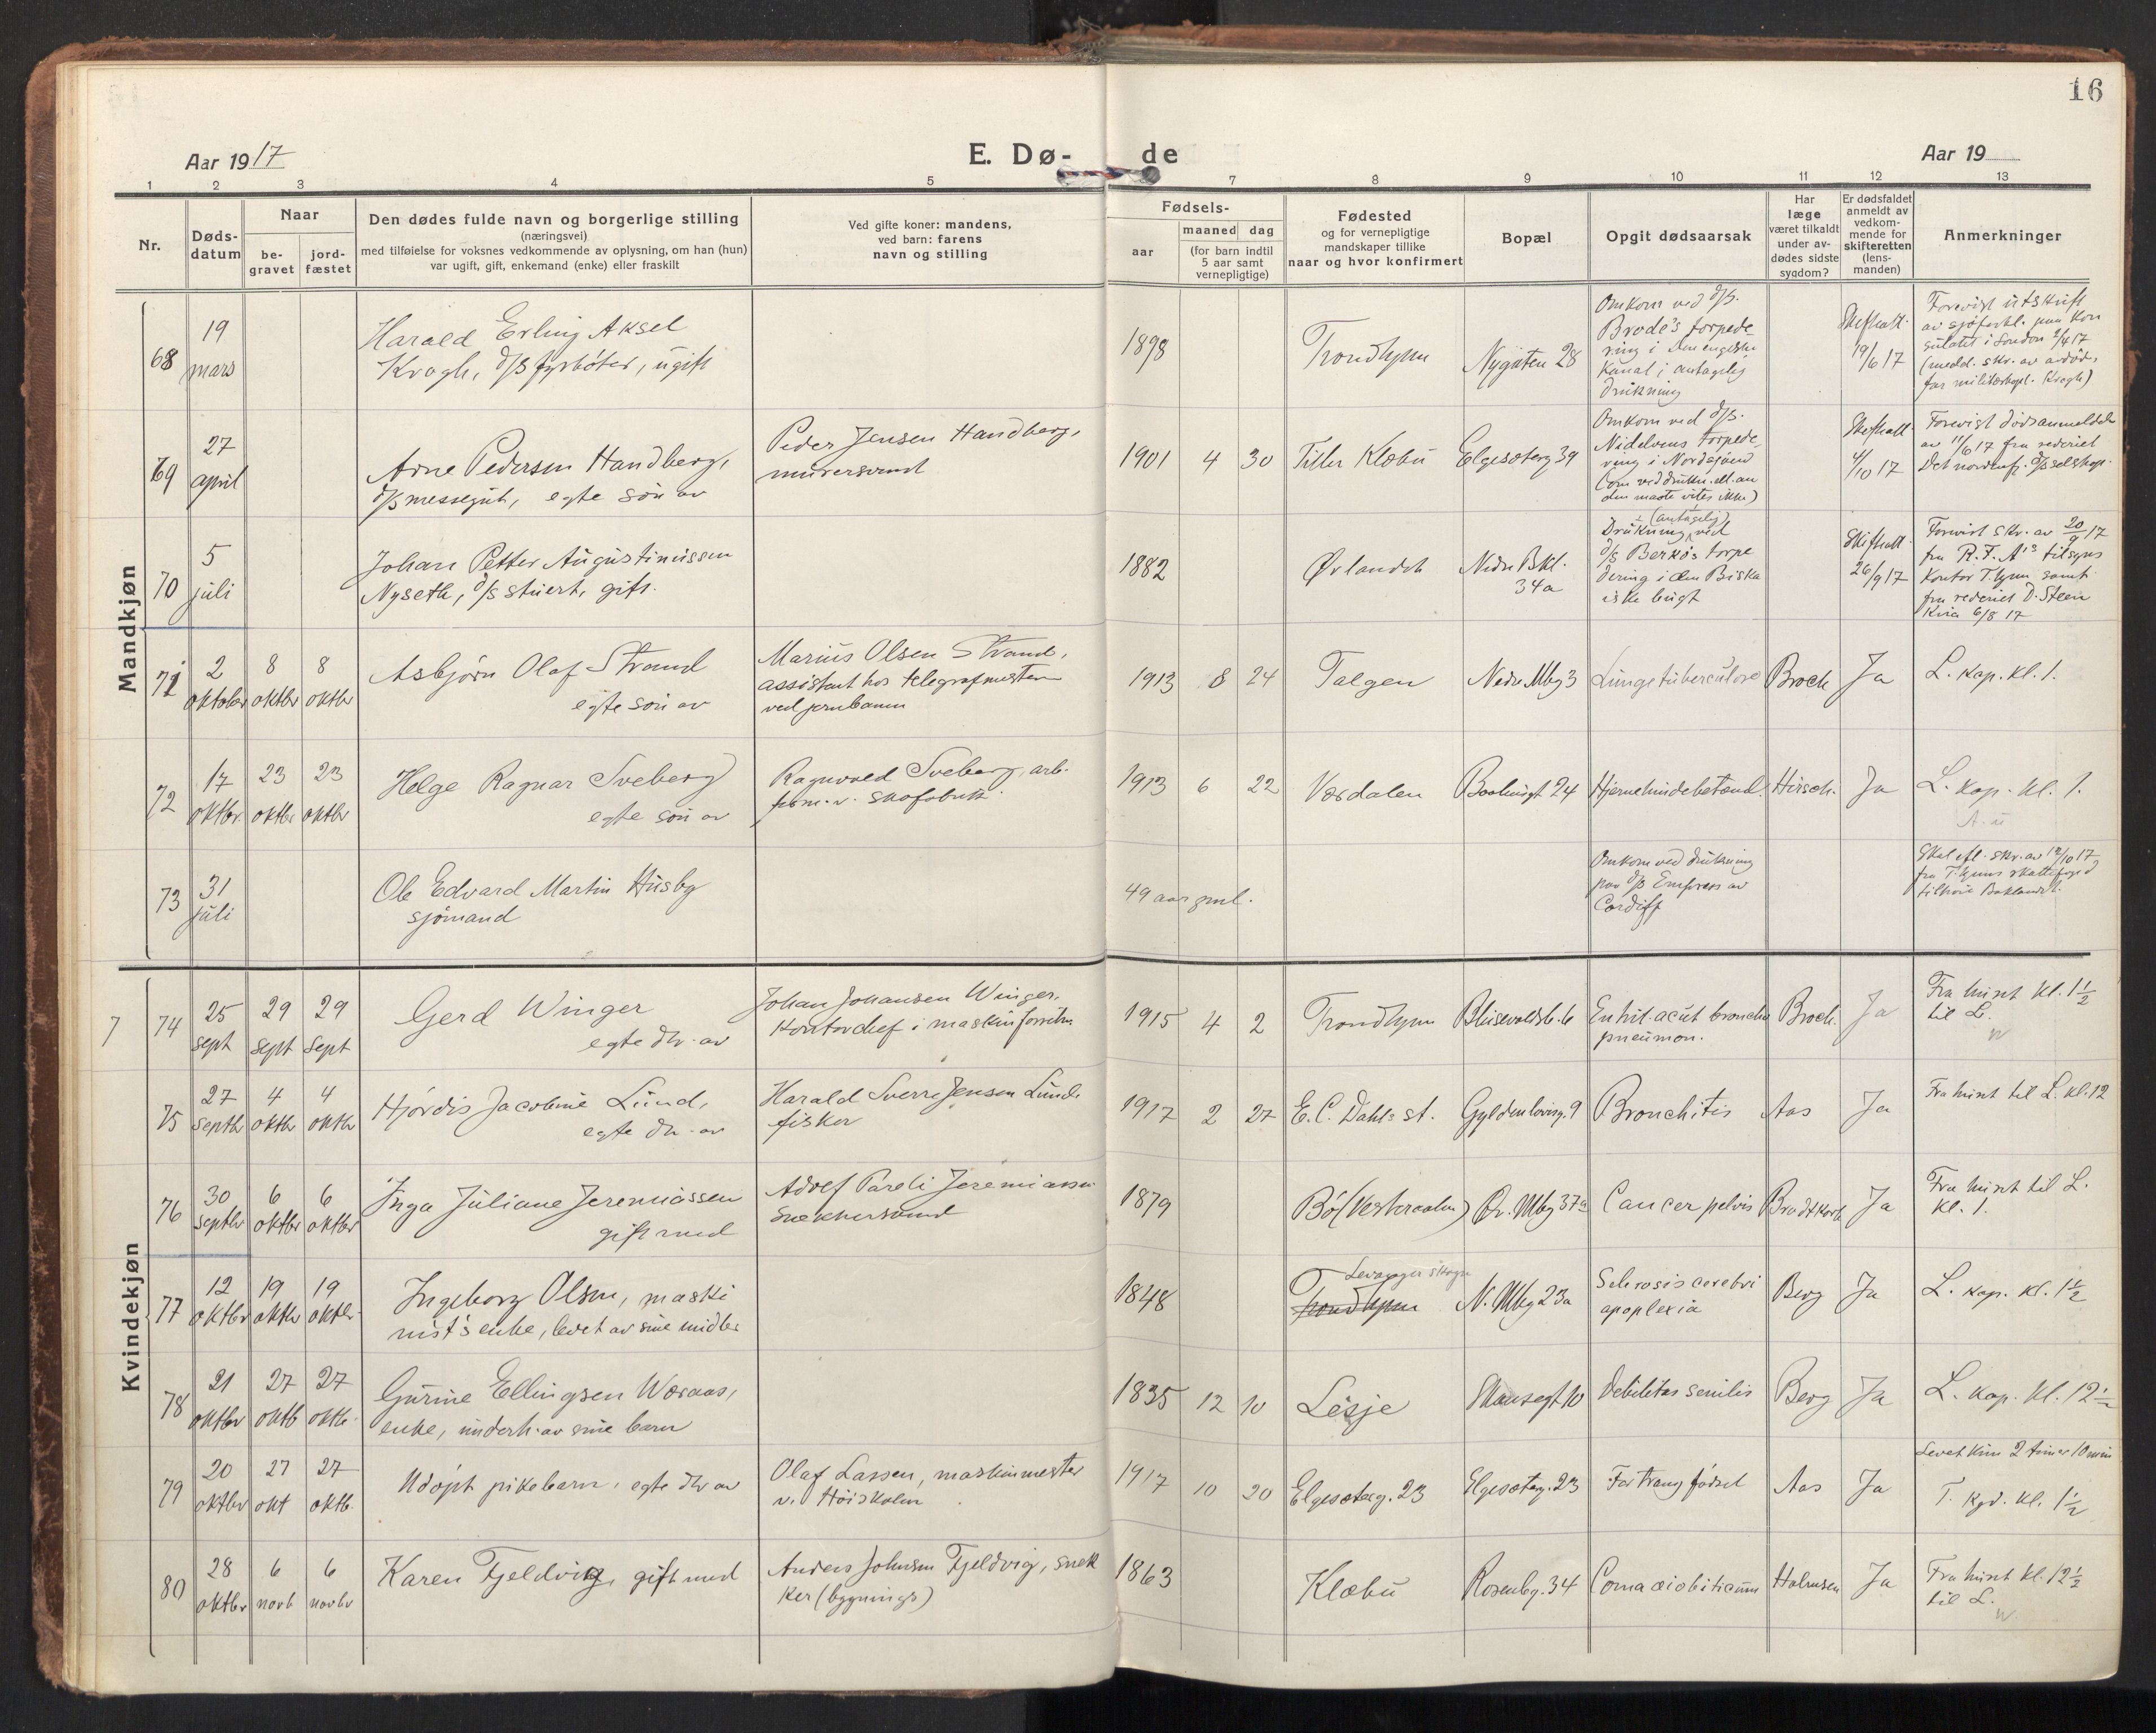 16
Aar 1917
E. Dø-
de
Aar 19
1 2 3 4 5 7 8 9 10 11 12 13
Nr.
Døds-
datum
Naar
be-
gravet
jord-
fæstet
Den dødes fulde navn og borgerlige stilling
(næringsvei)
med tilføielse for voksnes vedkommende av oplysning, om han (hun)
var ugift, gift, enkemand (enke) eller fraskilt
Ved gifte koner: mandens,
ved barn: farens
navn og stilling
Fødsels-
aar
maaned
dag
(for barn indtil
5 aar samt
vernepligtige)
Fødested
og for vernepligtige
mandskaper tillike
naar og hvor konfirmert
Bopæl
Opgit dødsaarsak
Har
læge
været tilkaldt
under av-
dødes sidste
sygdom?
Er dødsfaldet
anmeldt av
vedkom-
mende for
skifteretten
(lens-
manden)
Anmerkninger
Mandkjøn
68
19
mars
Harald Erling Aksel
Krogh, d/s fyrbøter, ugift
1898
Trondhjem
Nygaten 28
Omkom ved d/s.
Brode's torpede
ring i den engelske
Kanal i antagelig
drukning
Skifteatt.
19/6 17
Forevist utskrift
av sjøforkl. paa Kon
sulatet i London 2/4 17
69
27
april
Arne Pedersen Handberg,
d/s messegut, egte søn av
Peder Jensen Handberg,
murersvend
1901 4 30
Tiller Klæbu
Elgesæterg 39
Omkom ved d/s.
Nidelvens torpede
ring i Nordsjøen
(om ved drukn. ell. an
den maate vites ikke)
Skifteatt.
4/10 17
Forevist dødsanmeldelse
av 11/6 17 fra rederiet
Det nordenfj. d/sselskap.
70
5
juli
Johan Petter Augustinussen
Nyseth, d/s stuert, gift.
1882
Ørlandet
Nedre Bkl.
34a
(antagelig)
Drukning ved
d/s Berkös torpe
dering i den Biska
iske bugt
Skifteatt
26/9 17
Forevist skr. av 20/9 17
fra R.T.A's tilsyns
kontor T.hjem samt
fra rederiet D. Steen
Kria 6/8 17
71
2
oktober
8
oktbr
8
oktbr
Asbjørn Olaf Strand
egte søn av
Marius Olsen Strand,
assistent hos telegrafmester
ved jernbanen
1913 8 24
Talgen
Nedre Mbg 3
Lungetuberculose
Broch
Ja
L. kap. kl. 1.
72
17
oktbr.
23
oktbr
23
oktbr
Helge Ragnar Sveberg
egte søn av
Ragnvald Sveberg, arb.
form. v. skofabrik.
1913 6 22
Værdalen
Baahusgt 24
Hjernehindebetænd.
Hirsch.
Ja
L. kap. kl. 1.
73
31
juli
Ole Edvard Martin Husby
sjømand
49 aar gml.
Omkom ved drukning
paa d/s Empress av
Cardiff
Skal efl. skr. av 12/10 17
fra T.hjems skattefoged
tilhøre Baklandet.
Kvindekjøn
7
74
25
sept
29
sept
29
sept
Gerd Winger
egte dtr. av
Johan Johansen Winger,
Kontorchef i maskinforretn.
1915 4 2
Trondhjem
Enkit. acut broncho
pneumon.
Broch.
Ja
Fra huset kl. 1½
til L.
75
27
septbr
4
oktbr
4
oktbr
Hjørdis Jacobine Lund,
egte dtr. av
Harald Sverre Jensen Lund,
fisker
1917 2 27
E.C. Dahls st.
Gyldenløvesg. 9
Bronchitis
Aas
Ja
Fra huset til L. kl. 12
76
30
septbr
6
oktbr
6
oktbr
Inga Juliane Jeremiassen
gift med
Adolf Pareli Jeremiassen
snekkersvend
1879
Bø (Vesteraalen)
Øv. Mbg 37a
Cancer pelvis
Bradtkorb
Ja
Fra huset til L.
kl. 1.
77
12
oktbr
19
oktbr
19
oktbr.
Ingeborg Olsen, maski
nist's enke, levet av sine midler
1848
Levanger skogn
Trondhjem
N. Mbg 23a
Sclerosis cerebri
apoplexia
Berg
Ja
L. kap. kl. 1½
78
21
oktbr
27
oktb
27
oktb.
Gurine Ellingsen Woraas,
enke, underh. av sine barn
1835 12 10
Lesje
Skansegt 10
Debilitas senilis
Berg
Ja
L. kap. kl. 12½
79
20
oktbr
27
okt
27
oktb.
Udøpt pikebarn, egte dtr av
Olaf Lassen, maskinmester
v. Høiskolen
1917 10 20
Elgesæterg. 23
Elgesæterg. 23
For trang fødsel
Aas
Ja
Levet kun 2 timer 10 min
T. kgd. kl. 1½
80
28
oktbr
6
novb
6
novbr
Karen Fjeldvig, gift med
Anders Johnsen Fjeldvig, snek
ker (bygnings)
1863
Klæbu
Rosenbg. 34
Coma diobiticum
Holmsen
Ja
Fra huset kl. 12½
til L.